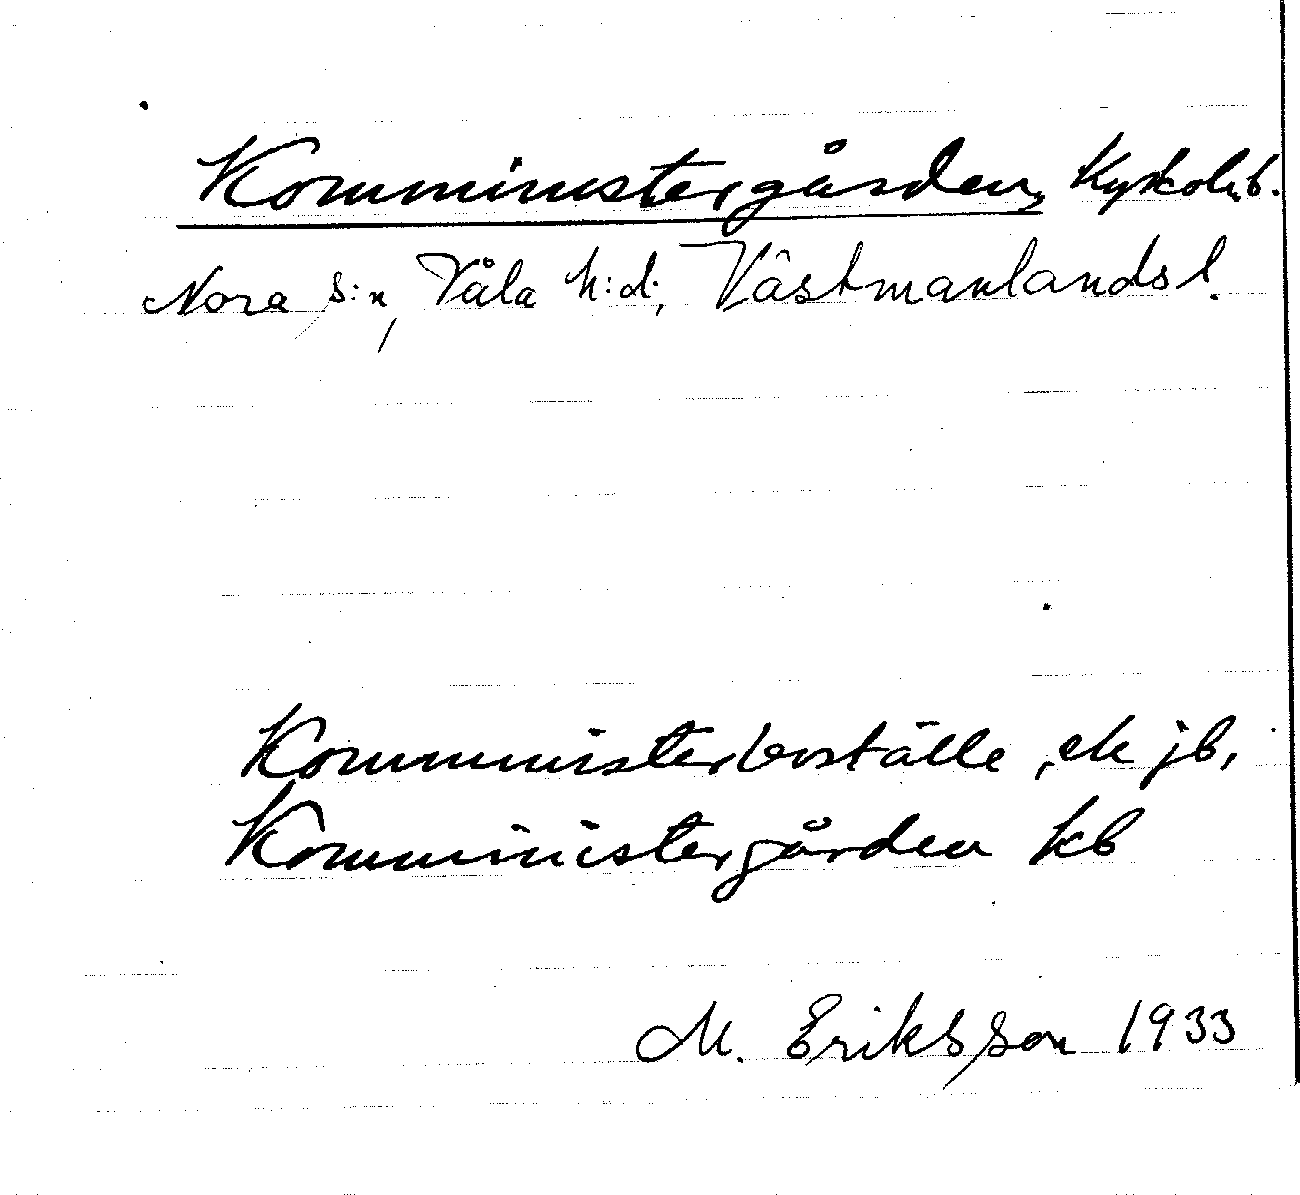 Komministergården, kyrkoh.b.
Nora s:n, Våla h:d., Västmanlands l.
Komministerboställe, ek jb,
Komministergården kb
M. Eriksson 1933